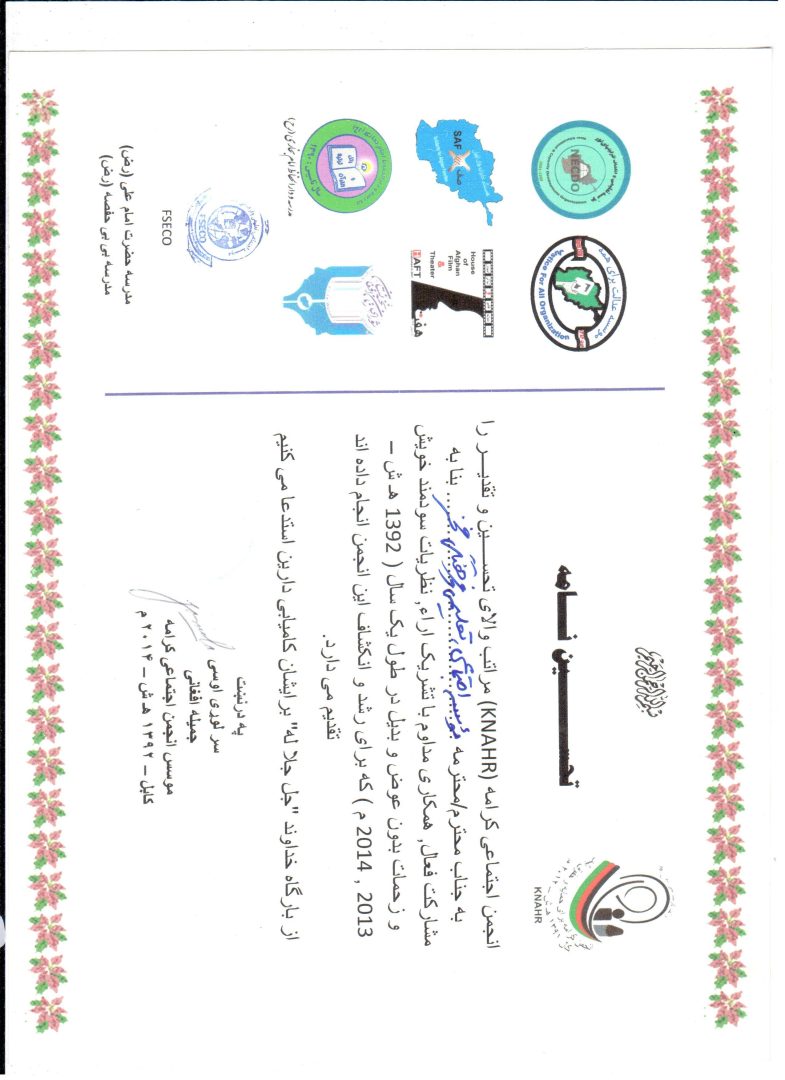 تحسین نامه
انجمن اجتماعی کرامه (KNAHR) مراتب والای تحسین و تقدیر را
به جناب محترم/محترمه موسسه اجتماعی تعلیمی ... بنا به
مشارکت فعال، همکاری مداوم با تشریک اراء، نظریات سودمند خویش
و زحمات بدون عوض و بدیل در طول یک سال ( 1392 هـ ش –
2013 , 2014 م ) که برای رشد و انکشاف این انجمن انجام داده اند
تقدیم می دارد.
از بارگاه خداوند "جل جلا له" بر ایشان کامیابی دارین استدعا می کنیم
په درنښت
سر لوری اوسی
جمیله افغانی
موسس انجمن اجتماعی کرامه
کابل – ۱۳۹۲ هـ ش – ۲۰۱۴ م
KNAHR
NECDO
موسسه عدالت برای همه
Justice For All Organization
SAF
صاف
House
of
Afghan
Film
&
Theater
HAFT
هفت
مدرسه و دارالحفاظ امام بخاری (رح)
FSECO
FSECO
مدرسه حضرت امام علی (رض)
مدرسه بی بی حفصه (رض)